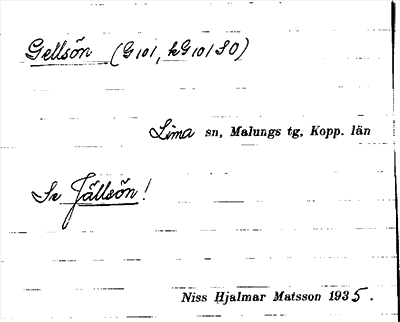 Gellsön (G101, kG101 SO)
Lima sn, Malungs tg, Kopp. län
Se Jällsön!
Niss Hjalmar Matsson 1935.